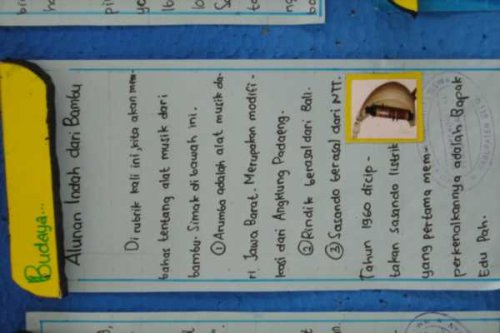 Budaya...
Alunan Indah dari Bambu
Di rubrik kali ini, kita akan mem-
bahas tentang alat musik dari
bambu. Simak di bawah ini.
① Arumba adalah alat musik da-
ri Jawa Barat. Merupakan modifi-
kasi dari Angklung Padaeng.
② Rindik berasal dari Bali.
③ Sasando berasal dari NTT.
Tahun 1960 dicip-
takan sasando listrik
yang pertama mem-
perkenalkannya adalah Bapak
Edu Pah.